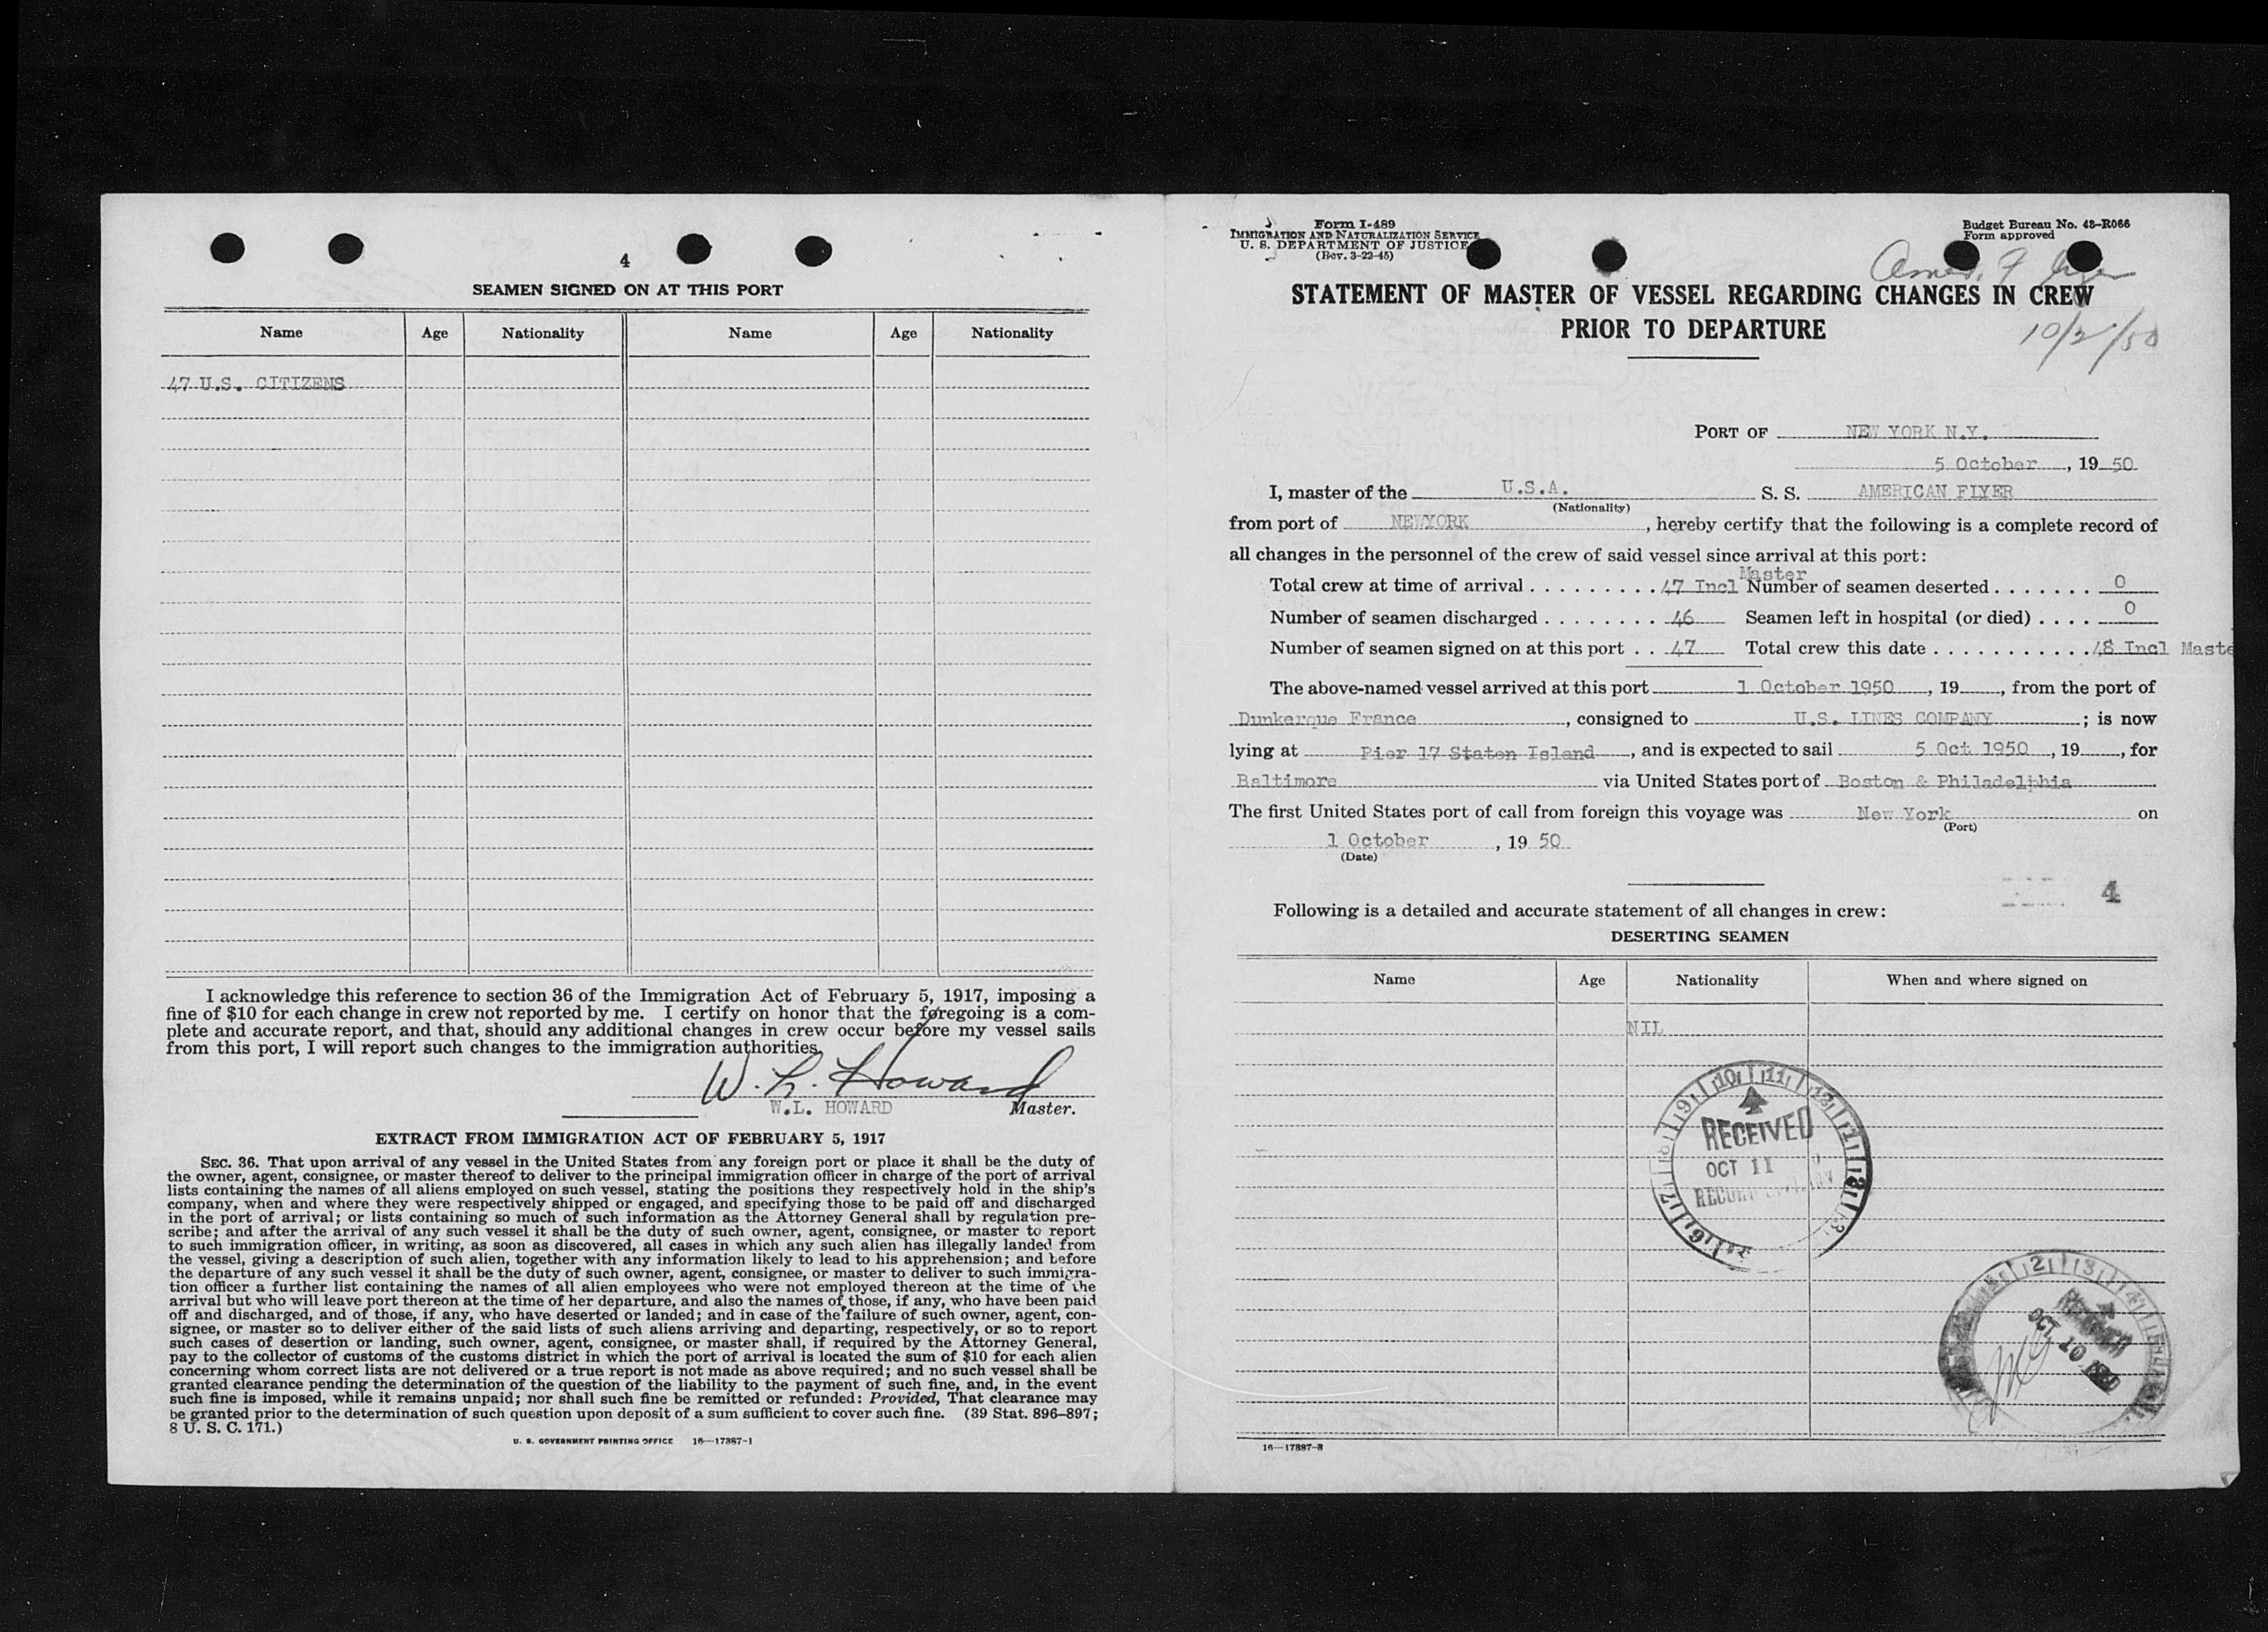 4
SEAMEN SIGNED ON AT THIS PORT
Name Age Nationality Name Age Nationality
47 U.S. CITIZENS
I acknowledge this reference to section 36 of the Immigration Act of February 5, 1917, imposing a
fine of $10 for each change in crew not reported by me. I certify on honor that the foregoing is a com-
plete and accurate report, and that, should any additional changes in crew occur before my vessel sails
from this port, I will report such changes to the immigration authorities.
W. L. Howard
W.L. HOWARD Master.
EXTRACT FROM IMMIGRATION ACT OF FEBRUARY 5, 1917
SEC. 36. That upon arrival of any vessel in the United States from any foreign port or place it shall be the duty of
the owner, agent, consignee, or master thereof to deliver to the principal immigration officer in charge of the port of arrival
lists containing the names of all aliens employed on such vessel, stating the positions they respectively hold in the ship's
company, when and where they were respectively shipped or engaged, and specifying those to be paid off and discharged
in the port of arrival; or lists containing so much of such information as the Attorney General shall by regulation pre-
scribe; and after the arrival of any such vessel it shall be the duty of such owner, agent, consignee, or master to report
to such immigration officer, in writing, as soon as discovered, all cases in which any such alien has illegally landed from
the vessel, giving a description of such alien, together with any information likely to lead to his apprehension; and before
the departure of any such vessel it shall be the duty of such owner, agent, consignee, or master to deliver to such immigra-
tion officer a further list containing the names of all alien employees who were not employed thereon at the time of the
arrival but who will leave port thereon at the time of her departure, and also the names of those, if any, who have been paid
off and discharged, and of those, if any, who have deserted or landed; and in case of the failure of such owner, agent, con-
signee, or master so to deliver either of the said lists of such aliens arriving and departing, respectively, or so to report
such cases of desertion or landing, such owner, agent, consignee, or master shall, if required by the Attorney General,
pay to the collector of customs of the customs district in which the port of arrival is located the sum of $10 for each alien
concerning whom correct lists are not delivered or a true report is not made as above required; and no such vessel shall be
granted clearance pending the determination of the question of the liability to the payment of such fine, and, in the event
such fine is imposed, while it remains unpaid; nor shall such fine be remitted or refunded: Provided, That clearance may
be granted prior to the determination of such question upon deposit of a sum sufficient to cover such fine. (39 Stat. 896–897;
8 U. S. C. 171.)
U. S. GOVERNMENT PRINTING OFFICE 16—17387-1
Form I-489
IMMIGRATION AND NATURALIZATION SERVICE
U. S. DEPARTMENT OF JUSTICE
(Rev. 3-22-45)
Budget Bureau No. 43-R066
Form approved
STATEMENT OF MASTER OF VESSEL REGARDING CHANGES IN CREW
PRIOR TO DEPARTURE
10/2/50
PORT OF NEW YORK N.Y.
5 October, 19 50
I, master of the U.S.A. S. S. AMERICAN FLYER
(Nationality)
from port of NEWYORK, hereby certify that the following is a complete record of
all changes in the personnel of the crew of said vessel since arrival at this port:
Total crew at time of arrival . . . . . . . . . 47 Incl Master Number of seamen deserted . . . . . . . 0
Number of seamen discharged . . . . . . . . 46 Seamen left in hospital (or died) . . . . 0
Number of seamen signed on at this port . . 47 Total crew this date . . . . . . . . . . . 48 Incl Maste
The above-named vessel arrived at this port 1 October 1950, 19, from the port of
Dunkerque France, consigned to U.S. LINES COMPANY; is now
lying at Pier 17 Staten Island, and is expected to sail 5 Oct 1950, 19, for
Baltimore via United States port of Boston & Philadelphia
The first United States port of call from foreign this voyage was New York on
(Port)
1 October, 19 50
(Date)
4
Following is a detailed and accurate statement of all changes in crew:
DESERTING SEAMEN
Name Age Nationality When and where signed on
NIL
RECEIVED
OCT 11
OCT 10 1950
16—17387-3